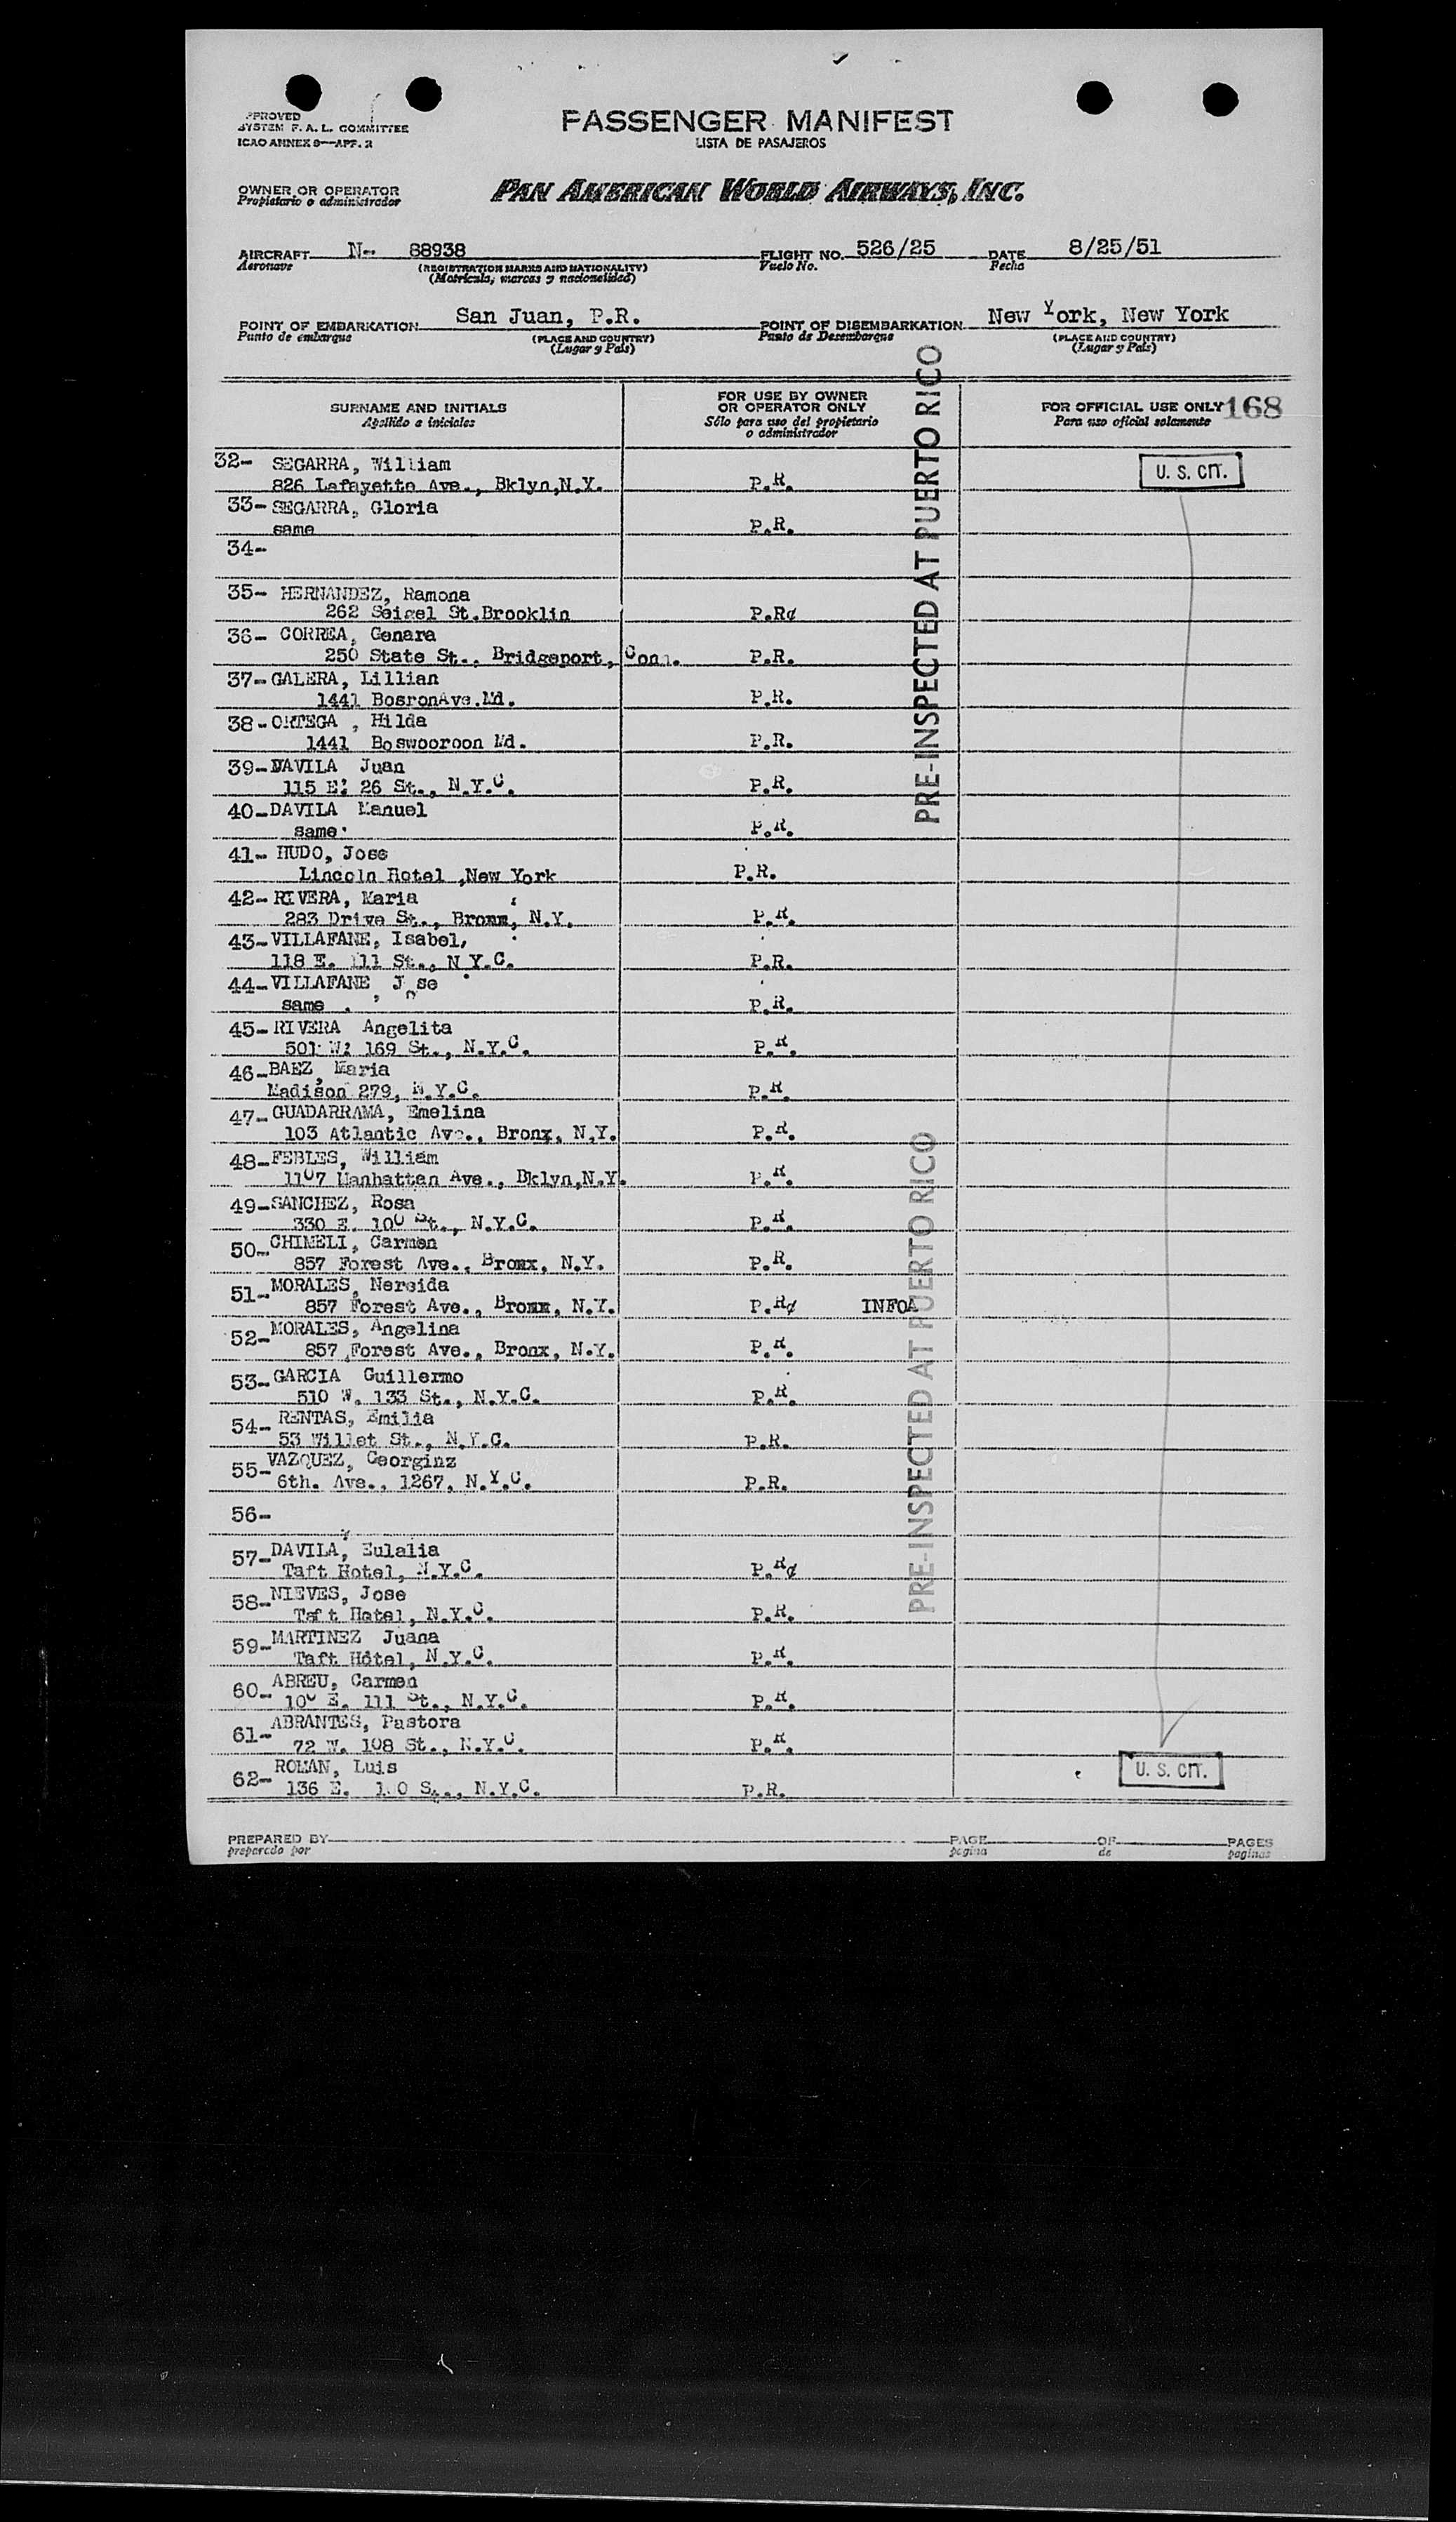 APPROVED
SYSTEM F. A. L. COMMITTEE
ICAO ANNEX 9—APP. 2
PASSENGER MANIFEST
LISTA DE PASAJEROS
OWNER OR OPERATOR
Propietario o administrador
PAN AMERICAN WORLD AIRWAYS, INC.
AIRCRAFT N-- 88938 FLIGHT NO. 526/25 DATE 8/25/51
Aeronave (REGISTRATION MARKS AND NATIONALITY) Vuelo No. Fecha
(Matrícula, marcas y nacionalidad)
POINT OF EMBARKATION San Juan, P.R. POINT OF DISEMBARKATION New York, New York
Punto de embarque (PLACE AND COUNTRY) Punto de Desembarque (PLACE AND COUNTRY)
(Lugar y País) (Lugar y País)
SURNAME AND INITIALS
Apellido e iniciales
FOR USE BY OWNER
OR OPERATOR ONLY
Sólo para uso del propietario
o administrador
FOR OFFICIAL USE ONLY 168
Para uso oficial solamente
PRE-INSPECTED AT PUERTO RICO
32- SEGARRA, William
826 Lafayette Ave., Bklyn,N.Y. P.R. U. S. CIT.
33- SEGARRA, Gloria
same P.R.
34-
35- HERNANDEZ, Ramona
262 Seigel St.Brooklin P.R¢
36- CORREA, Genara
250 State St., Bridgeport, Conn. P.R.
37- GALERA, Lillian
1441 BosronAve.Md. P.R.
38- ORTEGA , Hilda
1441 Boswooroon Md. P.R.
39- DAVILA Juan
115 E: 26 St., N.Y.C. P.R.
40- DAVILA Manuel
same P.R.
41- HUDO, Jose
Lincoln Hotel ,New York P.R.
42- RIVERA, Maria
283 Drive St., Bronx, N.Y. P.R.
43- VILLAFANE, Isabel,
118 E. 111 St., N Y.C. P.R.
44- VILLAFANE, Jose
same P.R.
45- RIVERA Angelita
501 W: 169 St., N.Y.C. P.R.
46- BAEZ, Maria
Madison 279, N.Y.C. P.R.
47- GUADARRAMA, Emelina
103 Atlantic Ave., Bronx, N.Y. P.R.
48- FEBLES, William
1107 Manhattan Ave., Bklyn,N.Y. P.R.
49- SANCHEZ, Rosa
330 E. 100 St., N.Y.C. P.R.
50- CHINELI, Carmen
857 Forest Ave., Bronx, N.Y. P.R.
51- MORALES, Nereida
857 Forest Ave., Bronx, N.Y. P.R¢ INFOA
52- MORALES, Angelina
857 Forest Ave., Bronx, N.Y. P.R.
53- GARCIA Guillermo
510 W. 133 St., N.Y.C. P.R.
54- RENTAS, Emilia
53 Willet St., N.Y.C. P.R.
55- VAZQUEZ, Georginz
6th. Ave., 1267, N.Y.C. P.R.
56-
57- DAVILA, Eulalia
Taft Hotel, N.Y.C. P.R¢
58- NIEVES, Jose
Taft Hotel, N.Y.C. P.R.
59- MARTINEZ Juana
Taft Hotel, N.Y.C. P.R.
60- ABREU, Carmen
100 E. 111 St., N.Y.C. P.R.
61- ABRANTES, Pastora
72 W. 108 St., N.Y.C. P.R.
62- ROMAN, Luis
136 E. St., N.Y.C. P.R. U. S. CIT.
PRE-INSPECTED AT PUERTO RICO
PREPARED BY PAGE OF PAGES
preparado por pagina de paginas